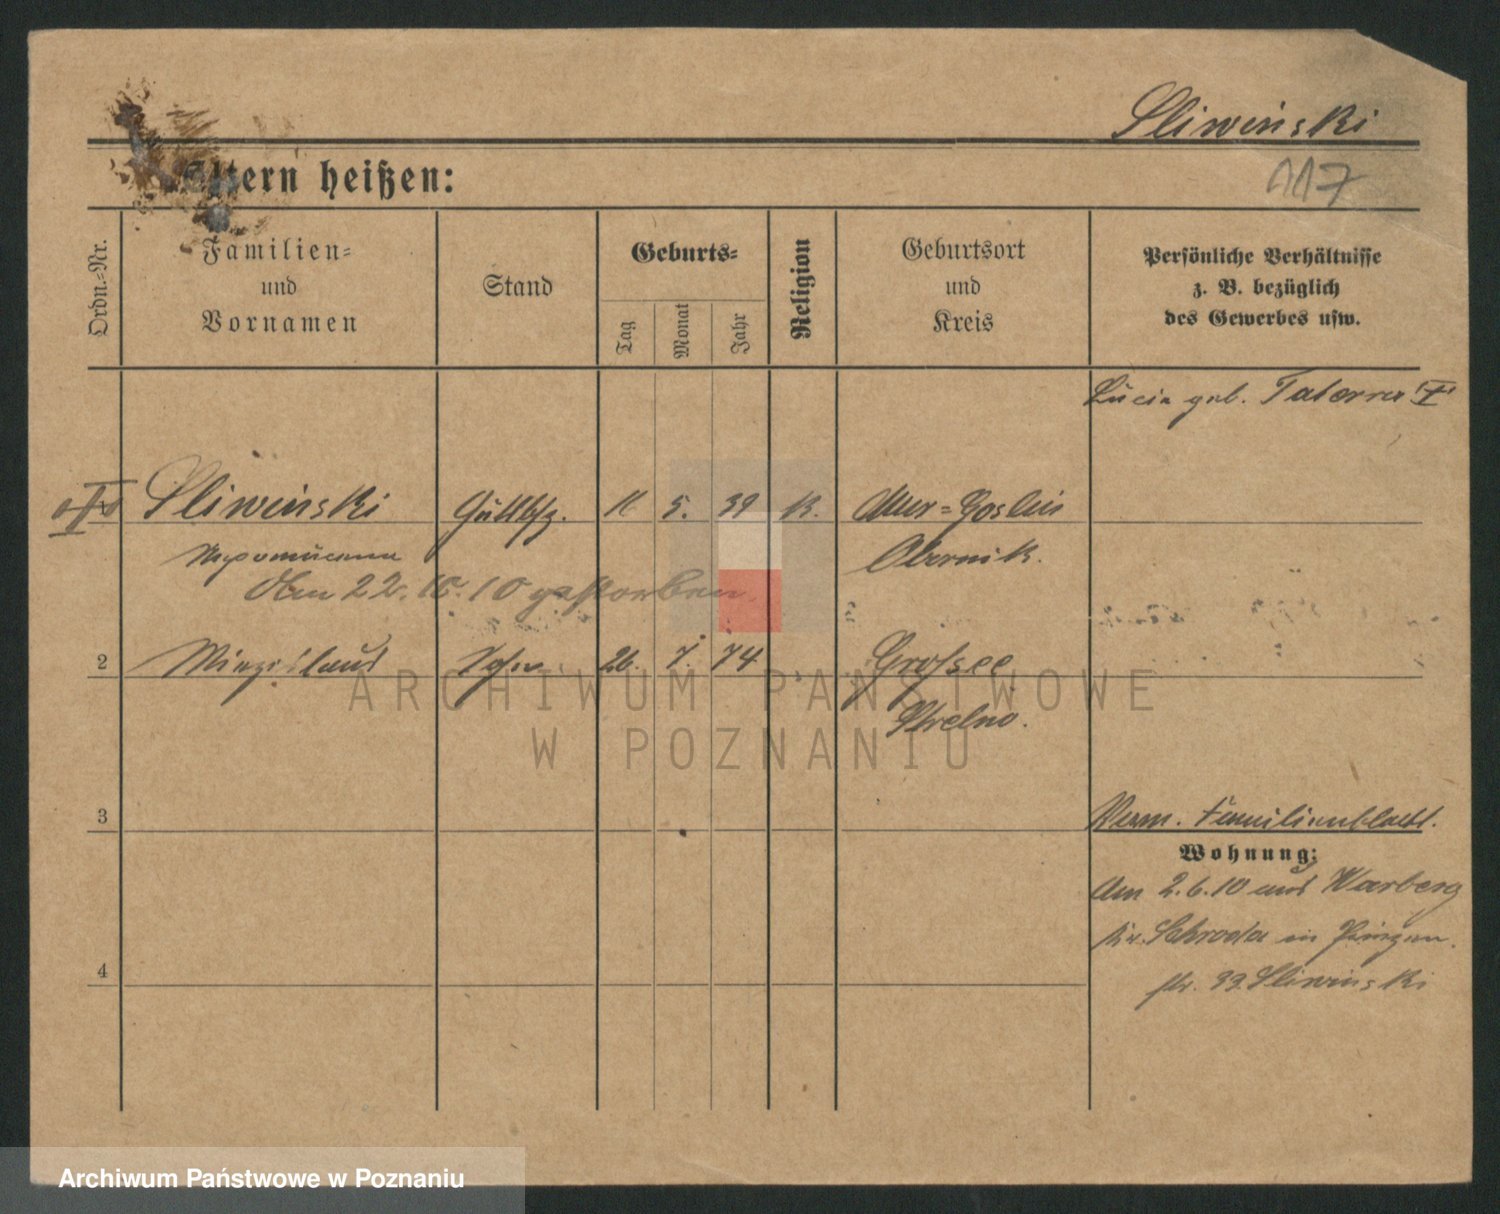 Sliwinski
117
Eltern heißen:
Ordn.=Nr.
Familien=
und
Vornamen
Stand
Geburts=
Tag
Monat
Jahr
Religion
Geburtsort
und
Kreis
Persönliche Verhältnisse
z. B. bezüglich
des Gewerbes usw.
Lucia geb.
Sliwinski 5. 39 k. Mur=Goslin
Nepomucena Obornik.
Am 22. 10. 10 gestorben
2 Sohn 26. 7. 74 Grofsee
Strelno.
3
Familienblatt.
Wohnung:
Am 2.6.10 aus Warberg
Kr. Schroda in
str. 33. Sliwinski
4
ARCHIWUM PAŃSTWOWE
W POZNANIU
Archiwum Państwowe w Poznaniu